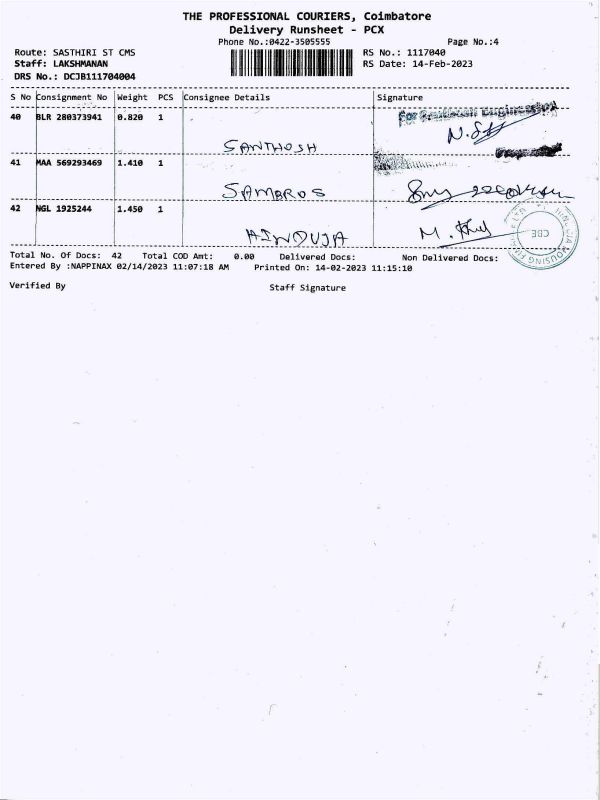 THE PROFESSIONAL COURIERS, Coimbatore
Delivery Runsheet - PCX
Phone No.:0422-3505555 Page No.:4
Route: SASTHIRI ST CMS RS No.: 1117040
Staff: LAKSHMANAN RS Date: 14-Feb-2023
DRS No.: DCJB111704004
S No Consignment No Weight PCS Consignee Details Signature
40 BLR 280373941 0.820 1
SANTHOSH
41 MAA 569293469 1.410 1
SAMBROS
42 NGL 1925244 1.450 1
HINDUJA
CBE
Total No. Of Docs: 42 Total COD Amt: 0.00 Delivered Docs: Non Delivered Docs:
Entered By :NAPPINAX 02/14/2023 11:07:18 AM Printed On: 14-02-2023 11:15:10
Verified By Staff Signature